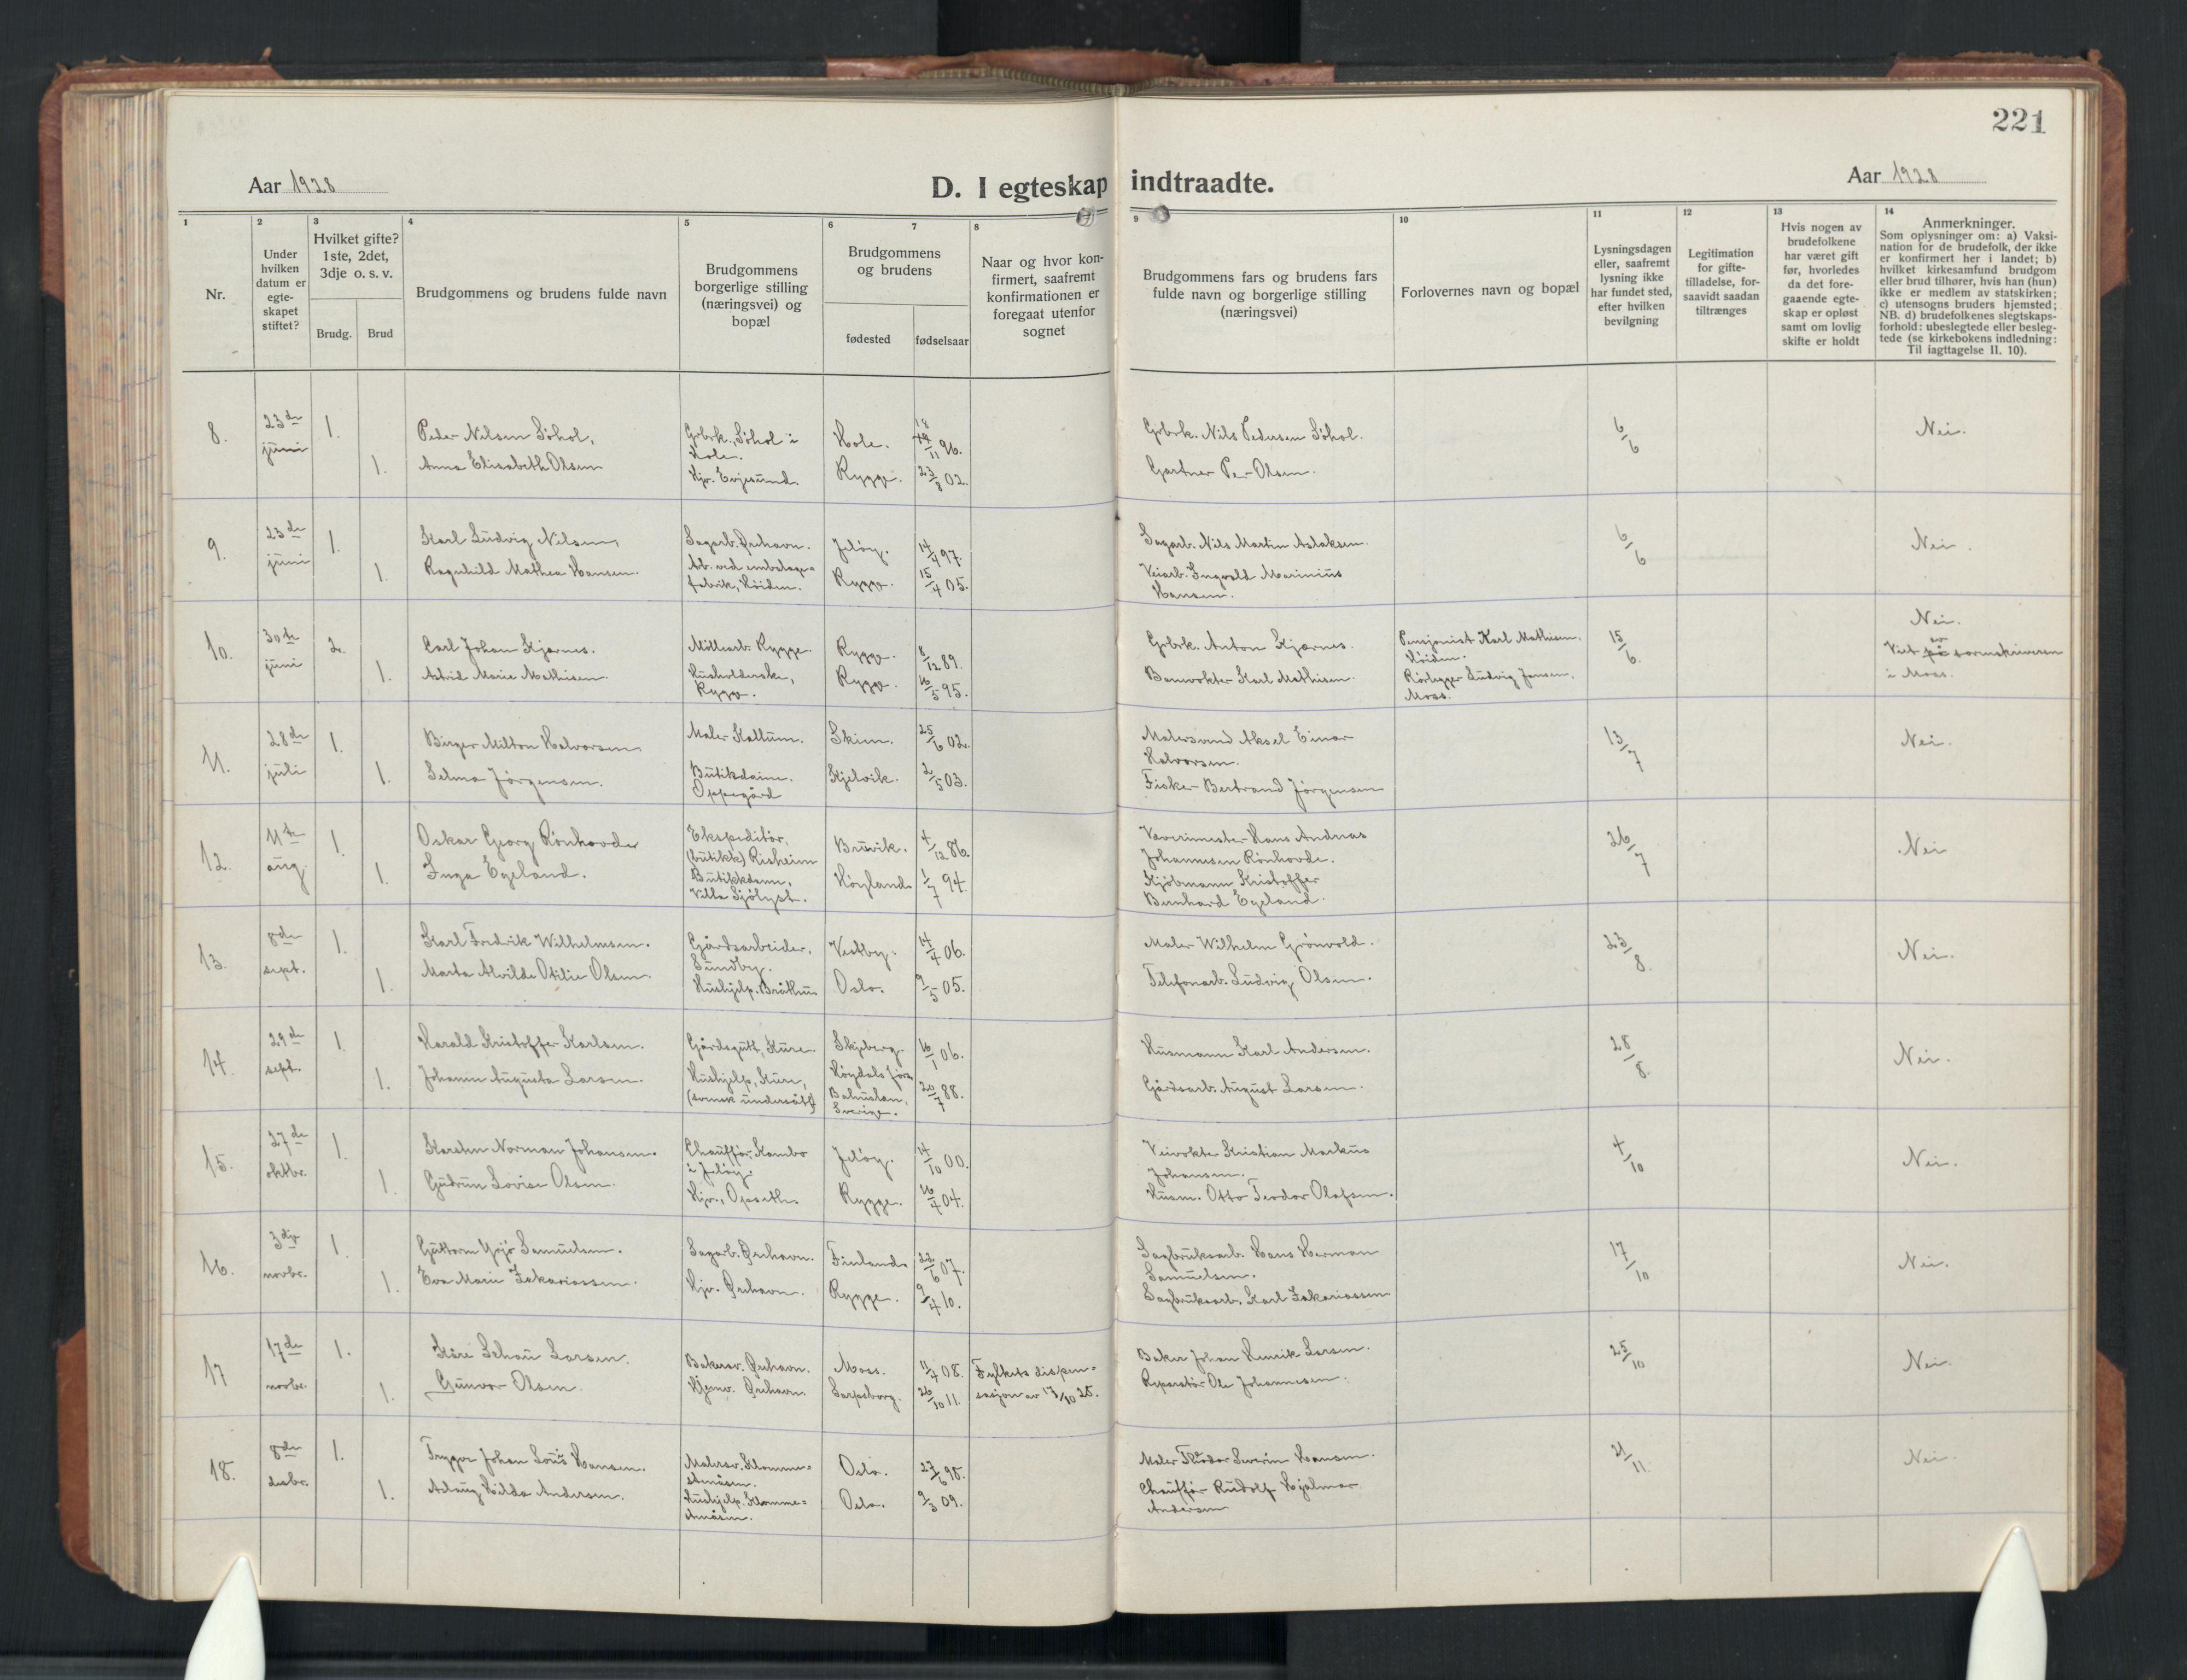 221
Aar 1928
D. I egteskap indtraadte.
Aar 1928
1
Nr.
2
Under
hvilken
datum er
egte-
skapet
stiftet?
3
Hvilket gifte?
1ste, 2det,
3dje o. s. v.
Brudg.
Brud
4
Brudgommens og brudens fulde navn
5
Brudgommens
borgerlige stilling
(næringsvei) og
bopæl
6
7
Brudgommens
og brudens
fødested
fødselsaar
8
Naar og hvor kon-
firmert, saafremt
konfirmationen er
foregaat utenfor
sognet
9
Brudgommens fars og brudens fars
fulde navn og borgerlige stilling
(næringsvei)
10
Forlovernes navn og bopæl
11
Lysningsdagen
eller, saafremt
lysning ikke
har fundet sted,
efter hvilken
bevilgning
12
Legitimation
for gifte-
tilladelse, for-
saavidt saadan
tiltrænges
13
Hvis nogen av
brudefolkene
har været gift
før, hvorledes
da det fore-
gaaende egte-
skap er opløst
samt om lovlig
skifte er holdt
14
Anmerkninger.
Som oplysninger om: a) Vaksi-
nation for de brudefolk, der ikke
er konfirmert her i landet; b)
hvilket kirkesamfund brudgom
eller brud tilhører, hvis han (hun)
ikke er medlem av statskirken;
c) utensogns bruders hjemsted;
NB. d) brudefolkenes slegtskaps-
forhold: ubeslegtede eller besleg-
tede (se kirkebokens indledning:
Til iagttagelse II. 10).
8.
23de
juni
1.
Peder Nilsen Søhol,
Gbrk., Søhol i
Hole.
Hole.
18/11 96.
Gbrk. Nils Pedersen Søhol.
6/6
Nei.
1.
Anna Elisabeth Olsen
Hjv. Evjesund.
Rygge.
23/8 02.
Gartner Per Olsen.
9.
23de
juni
1.
Karl Ludvig Nilsen,
Sagarb. Ørehavn.
Jeløy.
14/4 97.
Sagarb. Nils Martin Aslaksen.
6/6
Nei.
1.
Ragnhild Mathea Hansen.
Arb. ved embalage=
fabrik, Høiden.
Rygge.
15/4 05.
Veiarb. Ingvald Marinius
Hansen.
10.
30te
juni
2.
Carl Johan Kjærnes.
Møllearb. Rygge.
Rygge.
8/12 89.
Gbrk. Anton Kjærnes.
Pensjonist Karl Mathisen.
Høiden.
15/6.
Nei.
Viet av sorenskriveren
i Moss.
1.
Astrid Marie Mathisen.
Husholderske,
Rygge.
Rygge.
16/5 95.
Banevokter Karl Mathisen.
Rørlegger Ludvig Jensen,
Moss.
11.
28de
juli
1.
Birger Milton Halvorsen
Maler Kallum.
Skien.
25/6 02.
Malersvend Aksel Einar
Halvorsen.
13/7
Nei.
1.
Selma Jørgensen.
Butikdame.
Oppegård
Kjelvik.
2/5 03.
Fisker Bertrand Jørgensen
12.
11te
aug.
1.
Oskar Georg Rønhovde
Ekspeditør,
(butikk) Risheim
Bruvik.
4/12 86.
Væverimester Hans Andreas
Johannesen Rønhovde.
26/7
Nei
1.
Inga Egeland.
Butikkdame,
Villa Sjølyst.
Høyland.
1/7 94.
Kjøbmann Kristoffer
Bernhard Egeland.
13.
8de
sept.
1.
Karl Fredrik Wilhelmsen.
Gårdsarbeider,
Sundby.
Vestby.
14/4 06.
Maler Wilhelm Grønvold.
23/8.
Nei.
1.
Marta Alvilde Otilie Olsen.
Hushjelp.
Oslo.
9/5 05.
Telefonarb. Ludvig Olsen.
14.
29de
sept.
1.
Harald Kristoffer Karlsen.
Gårdsgutt, Kure.
Skjeberg.
16/1 06.
Husmann Karl Andersen.
28/8.
Nei.
1.
Johanne Augusta Larsen.
Hushjelp, Kure,
(svensk undersått)
Høgdals fors.
Bahuslen,
Sverige.
20/7 88.
Gårdsarb. August Larsen.
15.
27de
oktbr.
1.
Karsten Norman Johansen.
Chauffør, Kambo
i Jeløy.
Jeløy.
14/10 00.
Veivokter Kristian Markus
Johansen.
4/10
Nei.
1.
Gudrun Lovise Olsen.
Hjv., Opseth.
Rygge.
16/4 04.
Husm. Otto Teodor Olafsen.
16.
3dje
novbr.
1.
Guttorm Yrjø Samuelsen.
Sagarb. Ørehavn.
Finland.
22/6 07.
Sagbruksarb. Hans Herman
Samuelsen.
17/10
Nei.
1.
Eva Marie Zakariassen.
Hjv. Ørehavn.
Rygge.
9/4 10.
Sagbruksarb. Karl Zakariassen
17
17de
novbr.
1.
Kåre Schou Larsen.
Bakersv. Ørehavn.
Moss.
11/4 08.
Fylkets dispen=
sasjon av 17/10 28.
Baker Johan Henrik Larsen.
25/10
Nei.
1.
Gunvor Olsen.
Hjemv. Ørehavn.
Sarpsborg.
26/10 11.
Reparatør Ole Johannesen.
18.
8de
desbr.
1.
Trygve Johan Louis Hansen.
Malersv. Klomme=
stenåsen.
Oslo.
27/6 98.
Maler Teodor Severin Hansen.
21/11.
Nei.
1.
Aslaug Hilda Andersen.
Hushjelp. Klomme=
Oslo.
9/3 09.
Chauffør Rudolf Hjalmar
Andersen